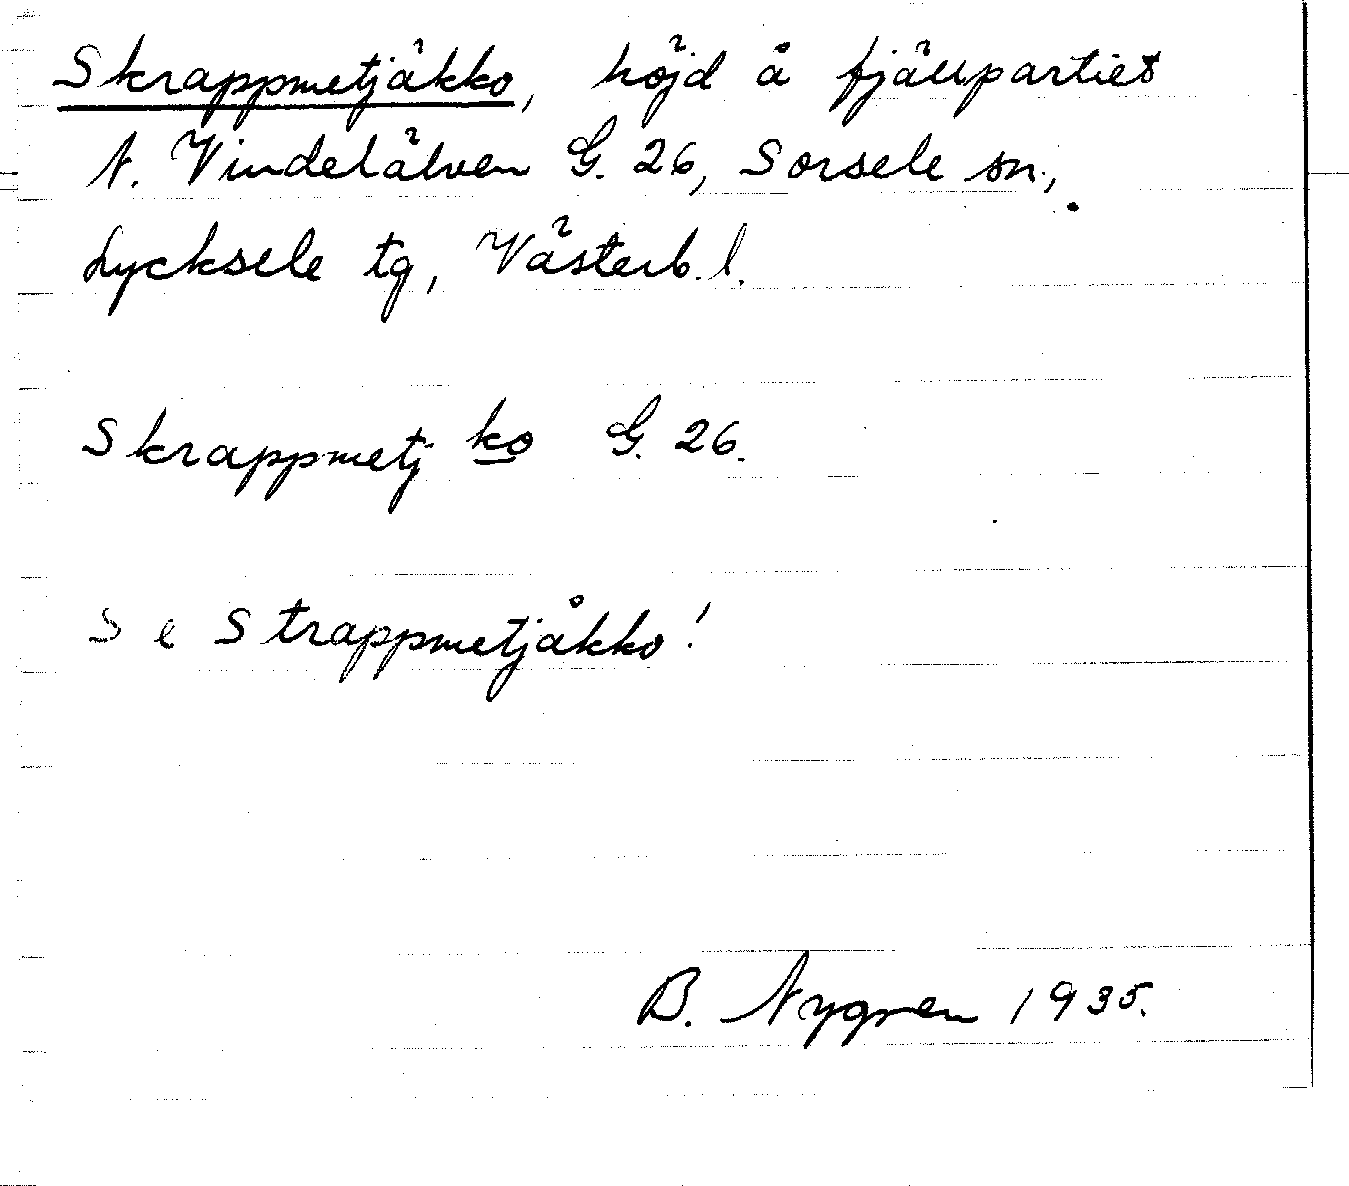 Skrappmetjåkko, höjd å fjällpartiet
N. Vindelälven G. 26, Sorsele sn.,
Lycksele tg, Västerb. l.
Skrappmetj ko G. 26.
Se Strappmetjåkko!
B. Nygren 1935.